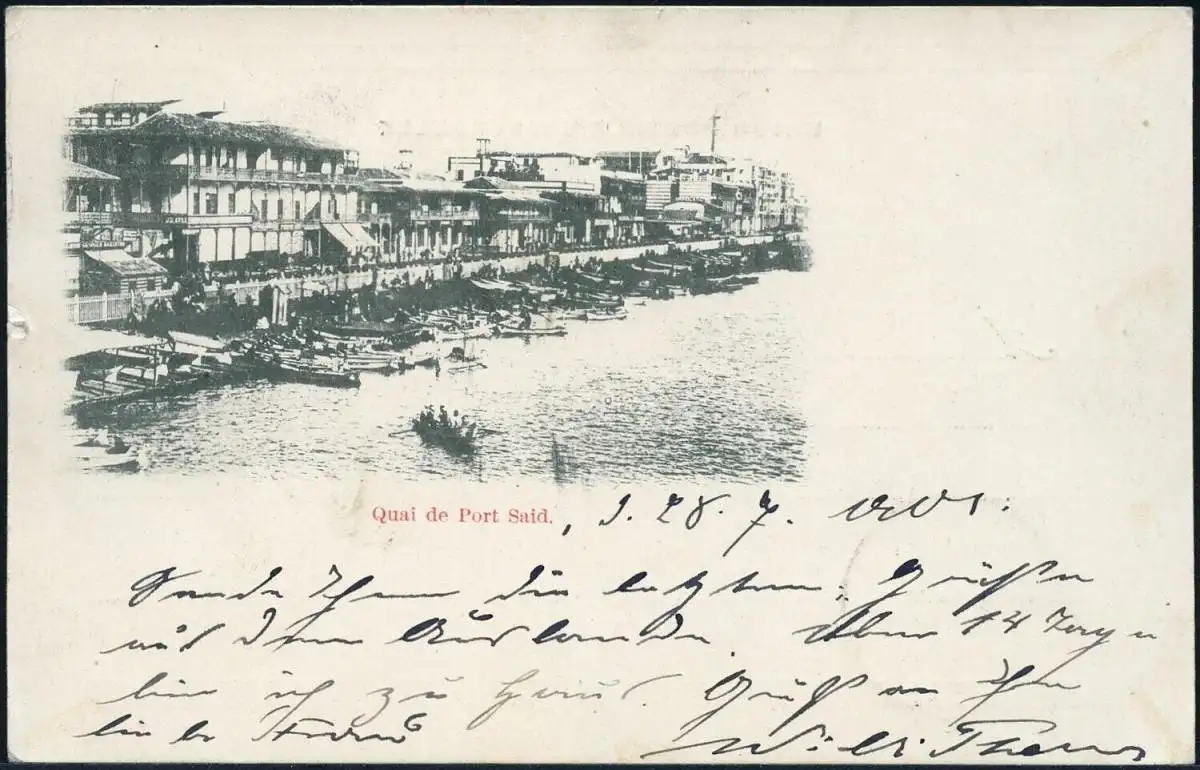 Quai de Port Said.
, d. 28. 7. 1901.
Sende Ihnen die letzten Grüße
aus dem Auslande. Über 14 Tagen
bin ich zu Haus. Gruß an Ihre
liebe Frau Willi